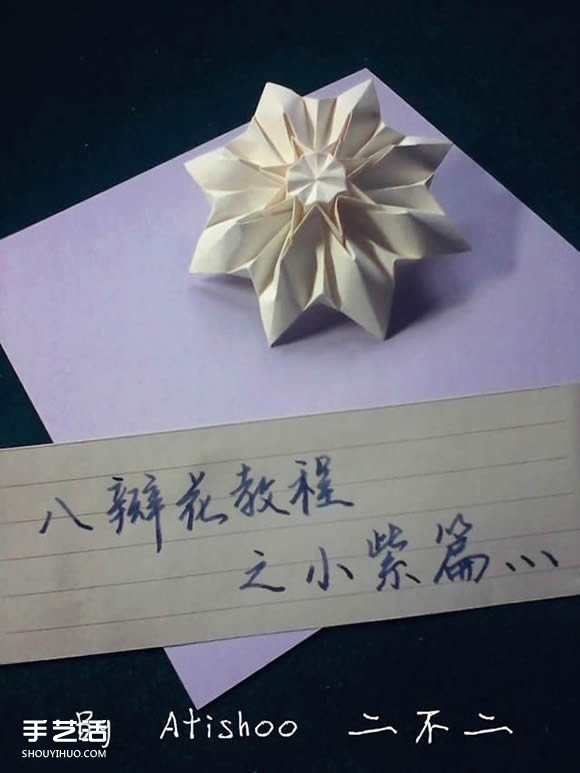 八瓣花教程
之小紫篇...
手艺活 By Atishoo 二不二
SHOUYIHUO.COM